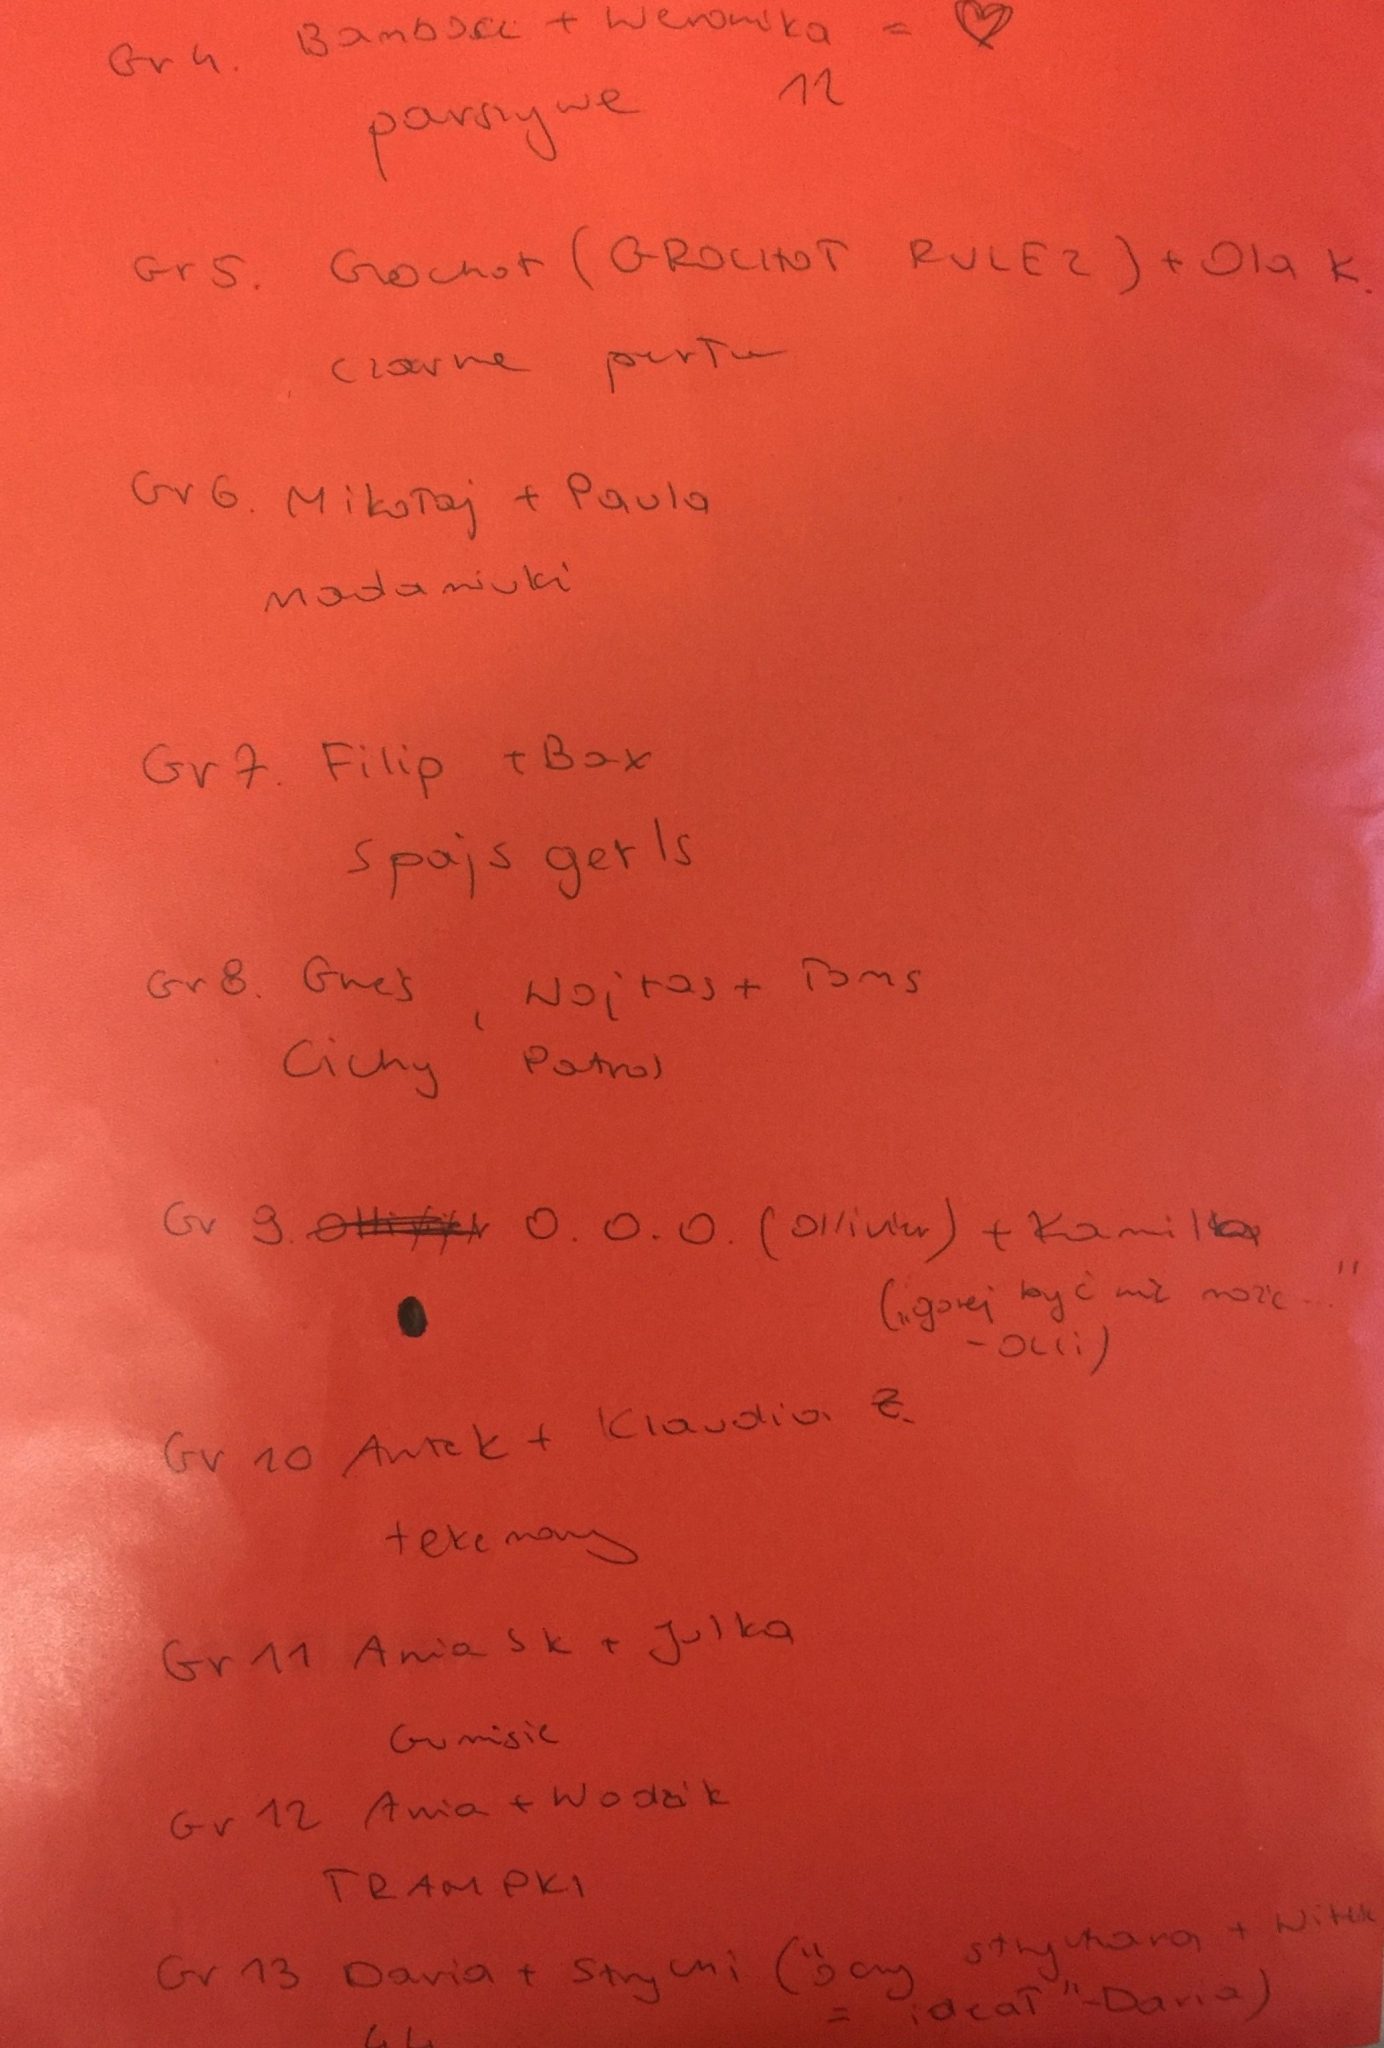 Gr 4. Bambosz + Weronika =
parszywe 12
Gr 5. Grochot (GROCHOT RULEZ) + Ola K.
czarne
Gr 6. Mikołaj + Paula
Madaniuki
Gr 7. Filip + Bax
spajs gerls
Gr 8. Wojtas + Toms
Cichy Patrol
Gr 9. O. O. O. (Ollivier) + Kamilla
("gorzej być nie może..."
- Olli)
Gr 10 Antek + Klaudia Z.
tekemany
Gr 11 Ania Sk + Julka
Gumisie
Gr 12 Ania + Wodzik
TRAMPKI
Gr 13 Daria + Strychi ("oczy strychara + Witek
= ideał" - Daria)
44